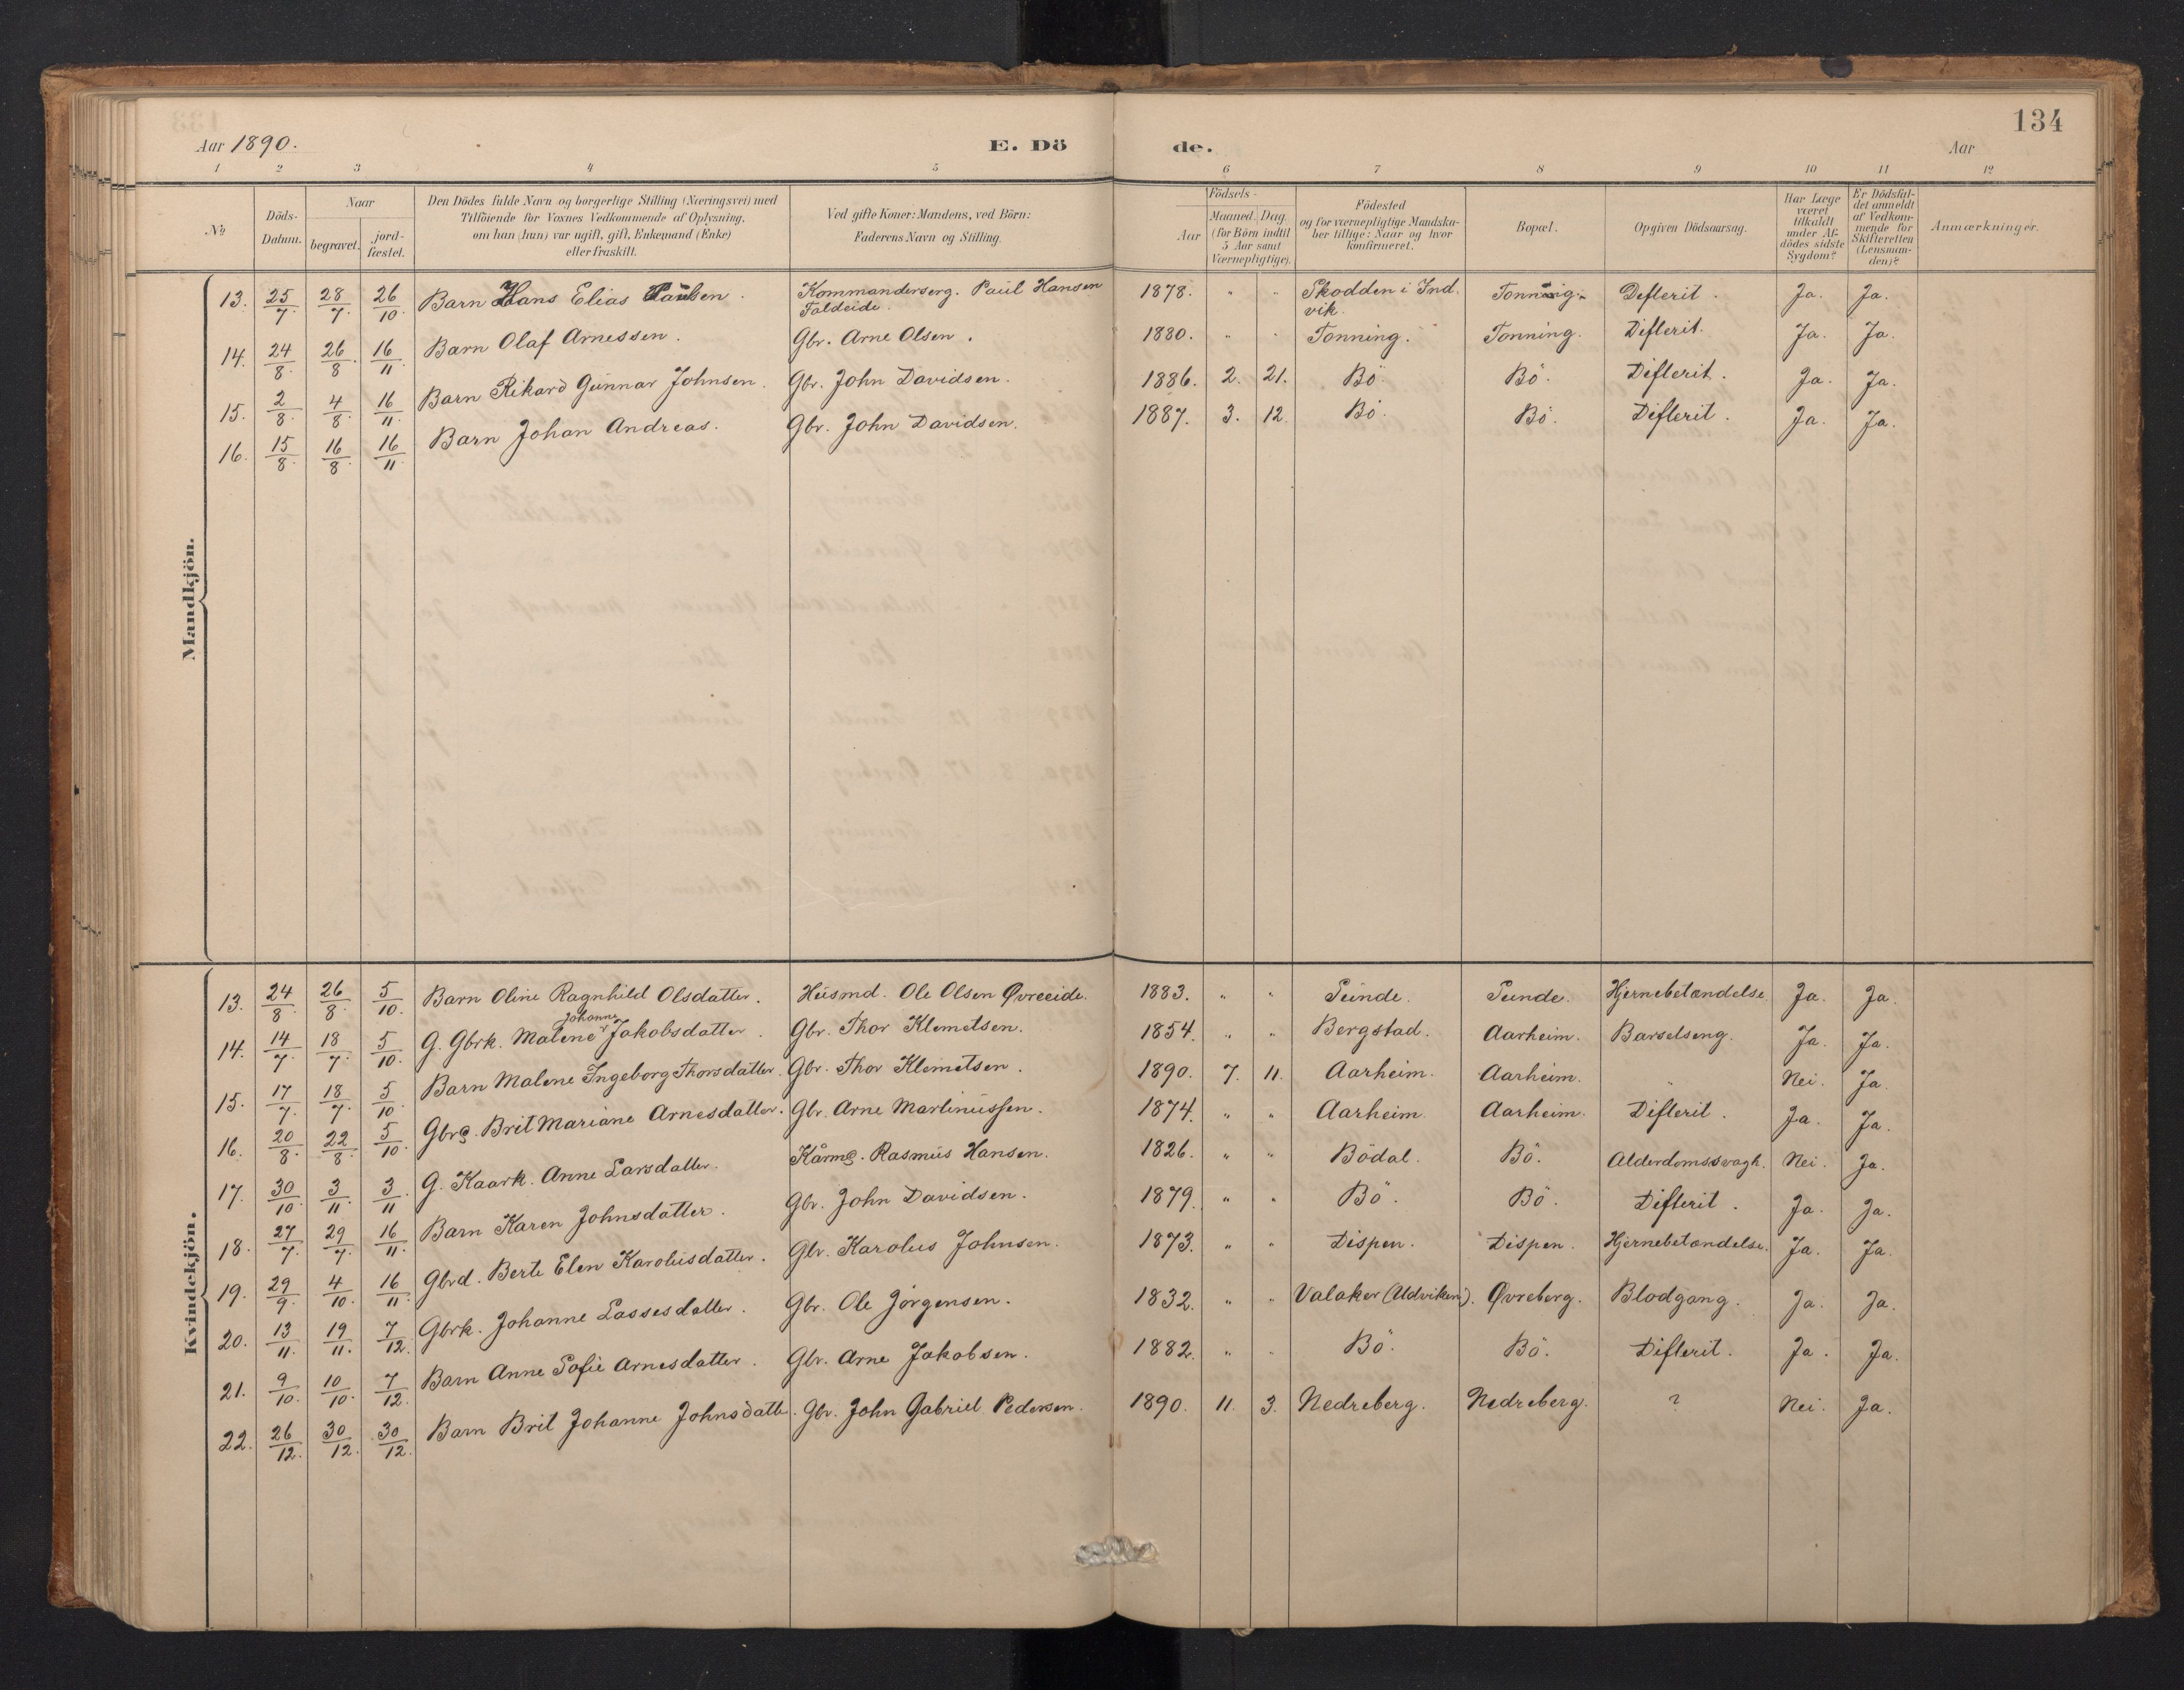 134
Aar 1890.
E. Dö de.
Aar
1 2 3 4 5 6 7 8 9 10 11 12
No
Döds-Datum.
Naar
begravet.
jord-fæstet.
Den Dödes fulde Navn og borgerlige Stilling (Næringsvei) med
Tilföiende for Voxnes Vedkommende af Oplysning,
om han (hun) var ugift, gift, Enkemand (Enke)
eller fraskilt.
Ved gifte Koner: Mandens, ved Börn:
Faderens Navn og Stilling.
Födsels-
Aar
Maaned. Dag.
(for Börn indtil
5 Aar samt
Værnepligtige).
Födested
og for værnepligtige Mandska-
ber tillige: Naar og hvor
konfirmeret.
Bopæl.
Opgiven Dödsaarsag.
Har Læge
været
tilkaldt
under Af-
dödes sidste
Sygdom?
Er Dödsfal-
det anmeldt
af Vedkom-
mende for
Skifteretten
(Lensman-
den)?
Anmærkninger.
Mandkjön.
13. 25/7 28/7 26/10 Barn Hans Elias Paulsen. Kommanderserg. Paul Hansen Faldeide. 1878. " " Skodden i Ind vik. Tonning. Defterit. Ja. Ja.
14. 24/8 26/8 16/11 Barn Olaf Arnessen. Gbr. Arne Olsen. 1880. " " Tonning. Tonning. Difterit. Ja. Ja.
15. 2/8 4/8 16/11 Barn Rikard Gunnar Johnsen. Gbr. John Davidsen. 1886. 2. 21. Bö. Bö. Difterit. Ja. Ja.
16. 15/8 16/8 16/11 Barn Johan Andreas. Gbr. John Davidsen. 1887. 3. 12. Bö. Bö. Difterit. Ja. Ja.
Kvindekjön.
13. 24/8 26/8 5/10 Barn Oline Ragnhild Olsdatter. Husmd. Ole Olsen Øvreeide. 1883. " " Sunde. Sunde. Hjernebetændelse. Ja. Ja.
14. 14/7 18/7 5/10 G. Gbrk. Malene Johanne Jakobsdatter. Gbr. Thor Klemetsen. 1854. " " Bergstad. Aarheim. Barselseng. Ja. Ja.
15. 17/7 18/7 5/10 Barn Malene Ingeborg Thorsdatter. Gbr. Thor Klemetsen. 1890. 7. 11. Aarheim. Aarheim. " Nei. Ja.
16. 20/8 22/8 5/10 Gbrs. Brit Mariane Arnesdatter. Gbr. Arne Martinussen. 1874. " " Aarheim. Aarheim. Difterit. Ja. Ja.
17. 30/10 3/11 3/11 G. Kaark. Anne Larsdatter. Kårmd. Rasmus Hansen. 1826. " " Bödal. Bö. Alderdomssvagh. Nei. Ja.
18. 27/7 29/7 16/11 Barn Karen Johnsdatter. Gbr. John Davidsen. 1879. " " Bö. Bö. Difterit. Ja. Ja.
19. 29/9 4/10 16/11 Gbrd. Berte Elen Karolusdatter. Gbr. Karolus Johnsen. 1873. " " Dispen. Dispen. Hjernebetændelse. Ja. Ja.
20. 13/11 19/11 7/12 Gbrk. Johanne Lassesdatter. Gbr. Ole Jörgensen. 1832. " " Valaker (Uldviken). Øvreberg. Blodgang. Ja. Ja.
21. 9/10 10/10 7/12 Barn Anne Sofie Arnesdatter. Gbr. Arne Jakobsen. 1882. " " Bö. Bö. Difterit. Ja. Ja.
22. 26/12 30/12 30/12 Barn Brit Johanne Johnsdatte. Gbr. John Gabriel Pedersen. 1890. 11. 3. Nedreberg. Nedreberg. ? Nei. Ja.